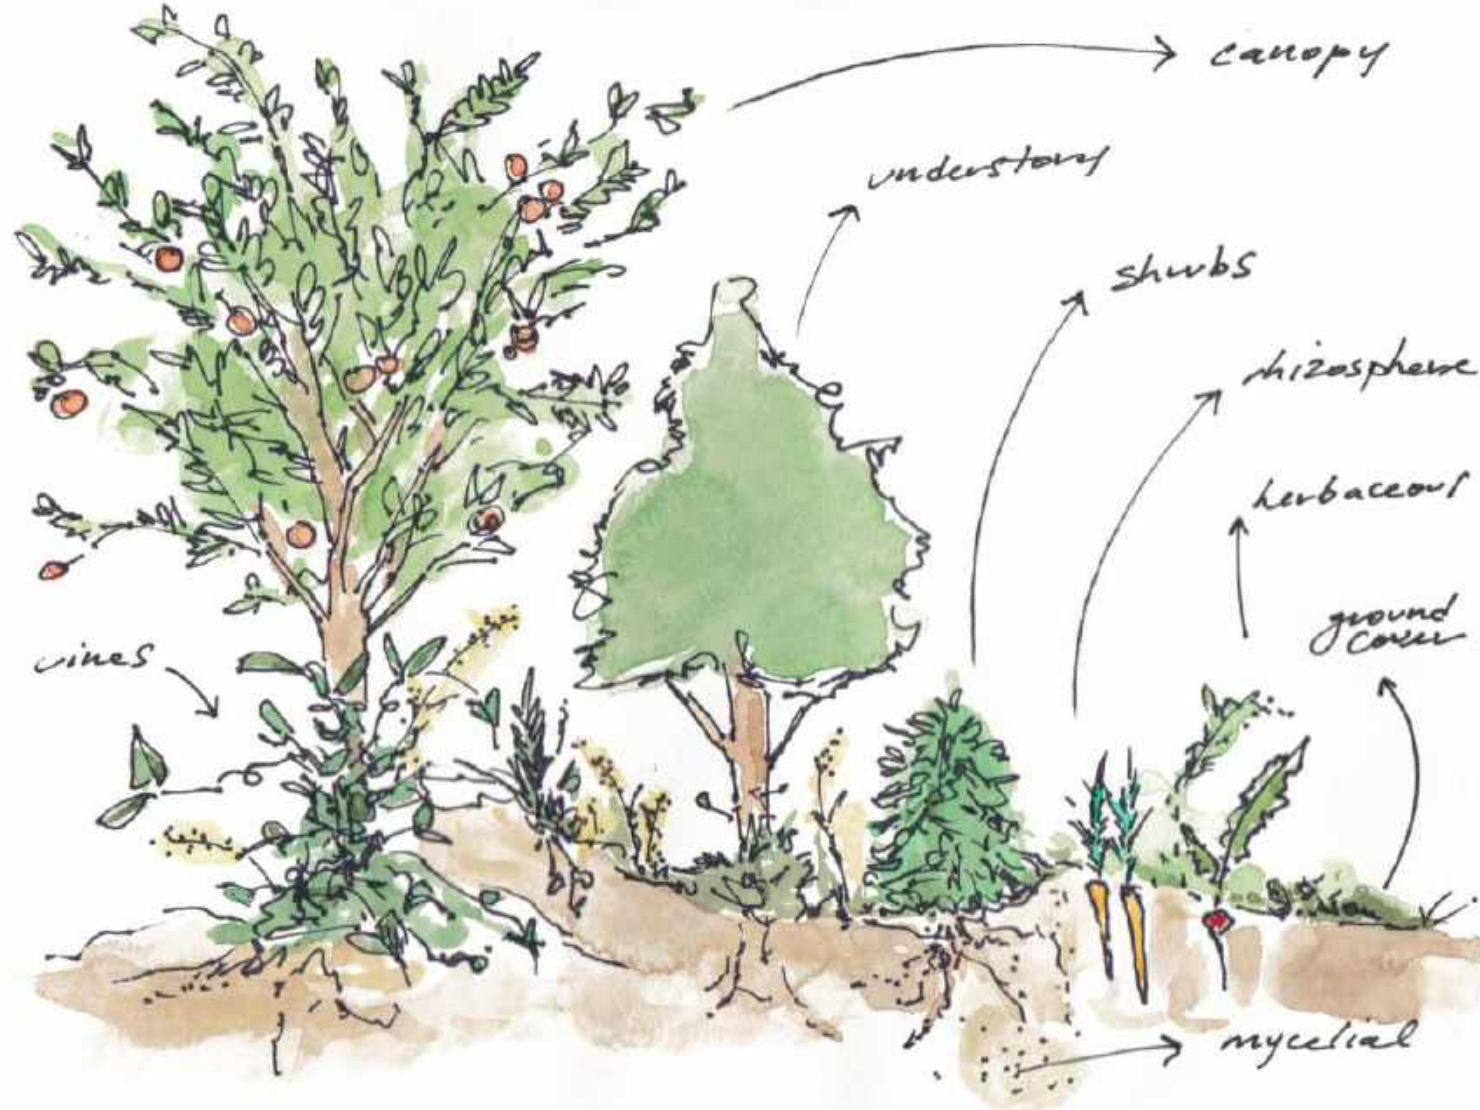 canopy
understory
shrubs
rhizosphere
herbaceous
ground
cover
vines
mycelial